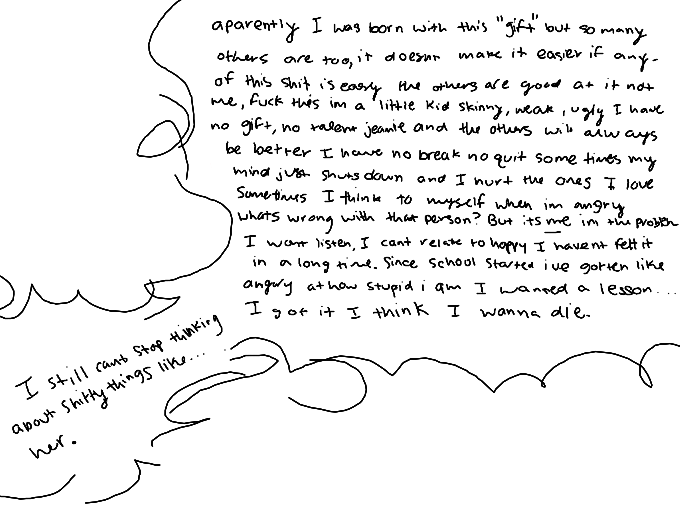 aparently I was born with this "gift" but so many
others are too, it doesnt make it easier if any-
of this shit is easy the others are good at it not
me, fuck this im a little kid skinny, weak, ugly I have
no gift, no talent jeanie and the others will always
be better I have no break no quit some times my
mind just shuts down and I hurt the ones I love
Sometimes I think to myself when im angry
whats wrong with that person? But its me im the problem
I wont listen, I cant relate to happy I havent felt it
in a long time. Since school started ive gotten like
angry at how stupid i am I wanted a lesson...
I got it I think I wanna die.
I still cant stop thinking
about shitty things like...
her.